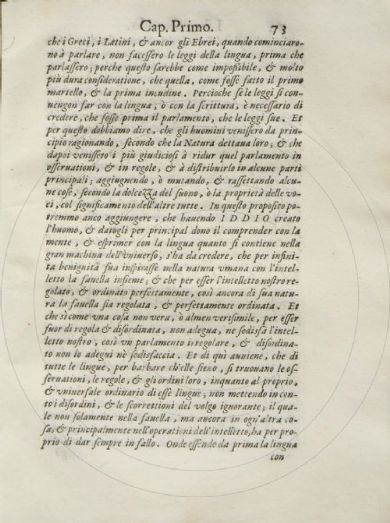 Cap. Primo. 73
che i Greci, i Latini, & ancor gli Ebrei, quando cominciaro-
no à parlare, non facessero le leggi della lingua, prima che
parlassero; perche questo sarebbe come impossibile, & molto
più dura consideratione, che quella, come fosse fatto il primo
martello, & la prima incudine. Percioche se le leggi si con-
uengon far con la lingua, ò con la scrittura, è necessario di
credere, che fosse prima il parlamento, che le leggi sue. Et
per questo dobbiamo dire, che gli huomini venissero da prin-
cipio ragionando, secondo che la Natura dettaua loro; & che
dapoi venissero i più giudiciosi à ridur quel parlamento in
osseruationi, & in regole, & à distribuirlo in alcune parti
principali; aggiungendo, ò mutando, & rassettando alcu-
ne cose, secondo la dolcezza del suono, ò la proprietà delle vo-
ci, col significamento dell'altre tutte. In questo proposito po-
tremmo anco aggiungere; che hauendo IDDIO creato
l'huomo, & datogli per principal dono il comprender con la
mente, & esprimer con la lingua quanto si contiene nella
gran machina dell'vniuerso, s'ha da credere, che per infini-
ta benignità sua inspirasse nella natura vmana con l'intel-
letto la fauella insieme; & che per esser l'intelletto nostro re-
golato, & ordinato perfettamente, così ancora di sua natu-
ra la fauella sia regolata, & perfettamente ordinata. Et
che sì come vna cosa non vera, ò almen verisimile, per esser
fuor di regola & disordinata, non adegua, ne sodisfà l'intel-
letto nostro, così vn parlamento irregolare, & disordina-
to non lo adegui nè sodisfaccia. Et di quì auuiene, che di
tutte le lingue, per barbare ch'elle sieno, si truouano le os-
seruationi, le regole, & gli ordini loro, inquanto al proprio,
& vniuersale ordinario di esse lingue; non mettendo in con-
to i disordini, & le scorrettioni del volgo ignorante; il qua-
le non solamente nella fauella, ma ancora in ogn'altra co-
sa, & principalmente nell'operationi dell'intelletto, ha per pro-
prio di dar sempre in fallo. Onde essendo da prima la lingua
con